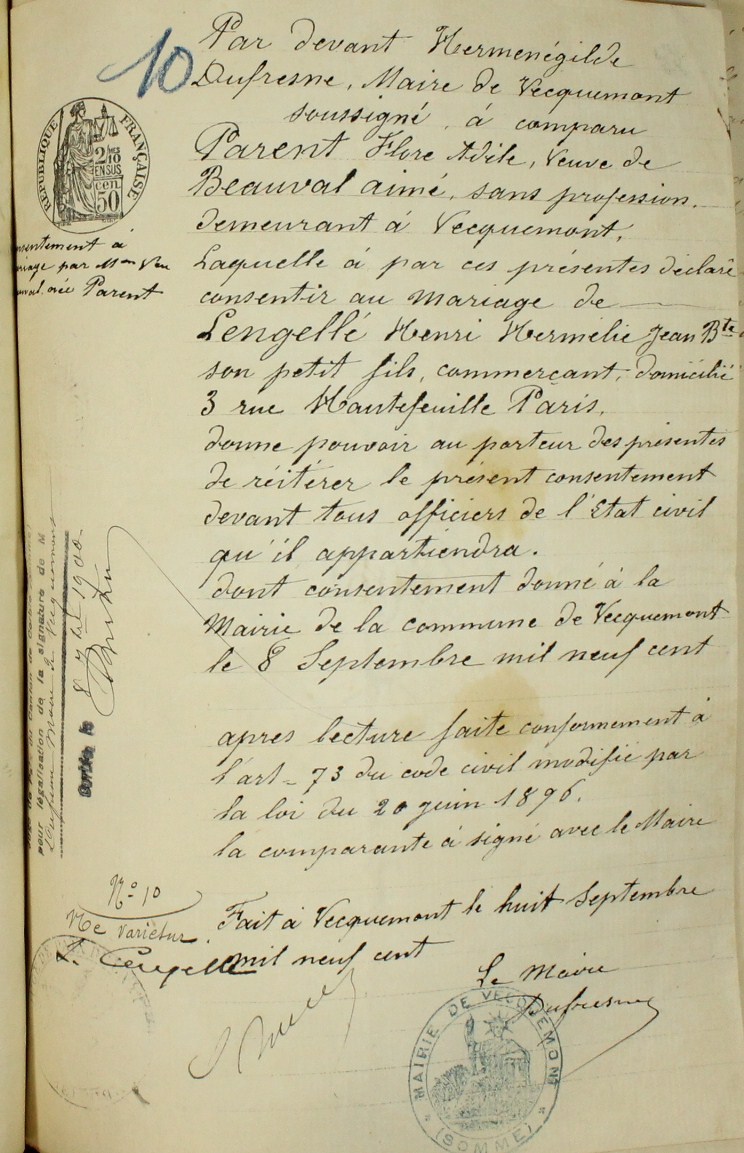 10
Par devant Hermenégilde
Dufresne, Maire de Vecquemont
soussigné, á comparu
Parent Flore Adile, Veuve de
Beauval aimé, sans profession,
demeurant á Vecquemont,
Laquelle á par ces présentes déclaré
consentir au mariage de
Lengellé Henri Hermélie Jean Bte
son petit fils, commerçant, domicilié
3 rue Hautefeuille Paris.
donne pouvoir au porteur des présentes
de réitérer le présent consentement
devant tous officiers de l'Etat civil
qu'il appartiendra.
dont consentement donné á la
Mairie de la commune de Vecquemont
le 8 Septembre mil neuf cent
après lecture faite conformement á
l'art- 73 du code civil modifié par
la loi du 20 juin 1896.
la comparante á signé avec le Maire
Fait á Vecquemont le huit Septembre
mil neuf cent
Le Maire
Dufresne
MAIRIE DE VECQUEMONT
(SOMME)
RÉPUBLIQUE FRANÇAISE
2/10
EN SUS
cen.
50
nsentement á
riage par Mme Vve
uval née Parent
pour légalisation de la signature de M
Dufresne Maire de Vecquemont
8 7bre 1900
No 10
Ne Varietur
Lengellé